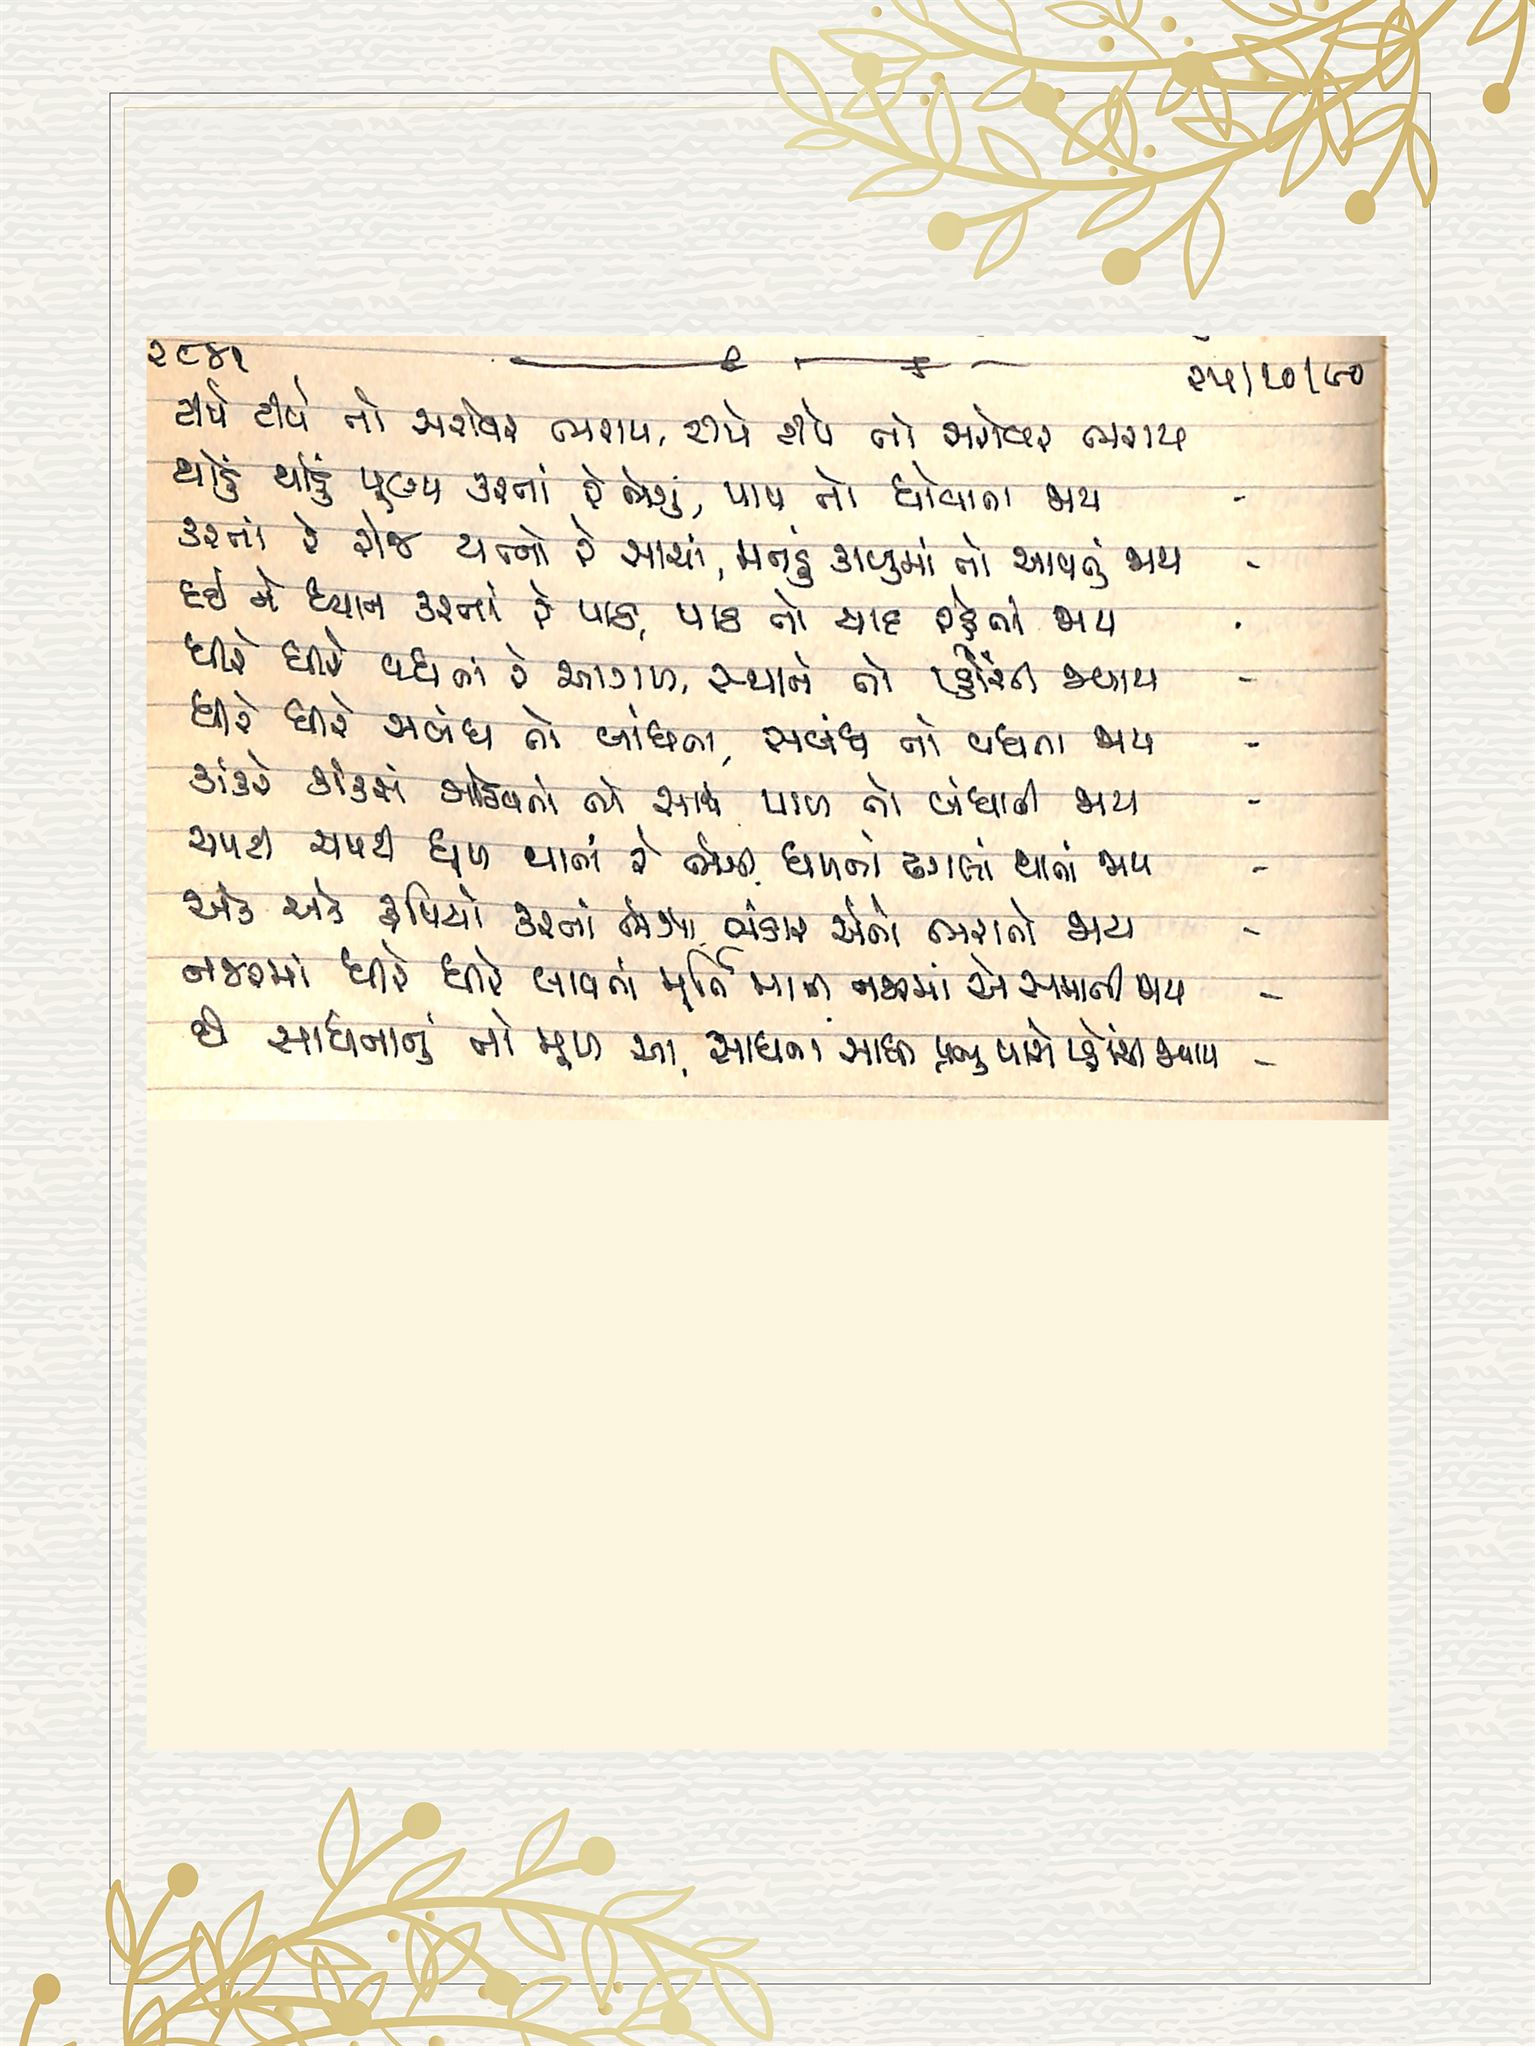 ૨૮૪૧
૨૫/૧૦/૯૦
ટીપે ટીપે તો સરોવર ભરાય, ટીપે ટીપે તો સરોવર ભરાય
થોડું થોડું પૂણ્ય કરતાં રે ભેગું, પાપ તો ધોવાતા જાય -
કરતાં રે રોજ યત્નો રે સાચાં, મનડું કાબુમાં તો આવતું જાય -
દઈ ને ધ્યાન કરતાં રે પાઠ, પાઠ તો યાદ રહેતાં જાય .
ધીરે ધીરે વધતાં રે આગળ, સ્થાને તો પ્હોંચી જવાય -
ધીરે ધીરે સબંધ તો બાંધતા, સબંધ તો વધતા જાય -
કાંકરે કાંકરા ગોઠવતાં તો સાથે પાળ તો બંધાતી જાય -
ચપટી ચપટી ધૂળ થાતાં રે ભેગી, ધૂળનો ઢગલો થાતાં જાય -
એક એક રૂપિયો કરતાં ભેગા, ભંડાર એનો ભરાતો જાય -
નજરમાં ધીરે ધીરે લાવતાં મૂર્તિ માત, નજરમાં એ સમાતી જાય -
છે સાધનાનું તો મૂળ આ, સાધના સાધી પ્રભુ પાસે પ્હોંચી જવાય -